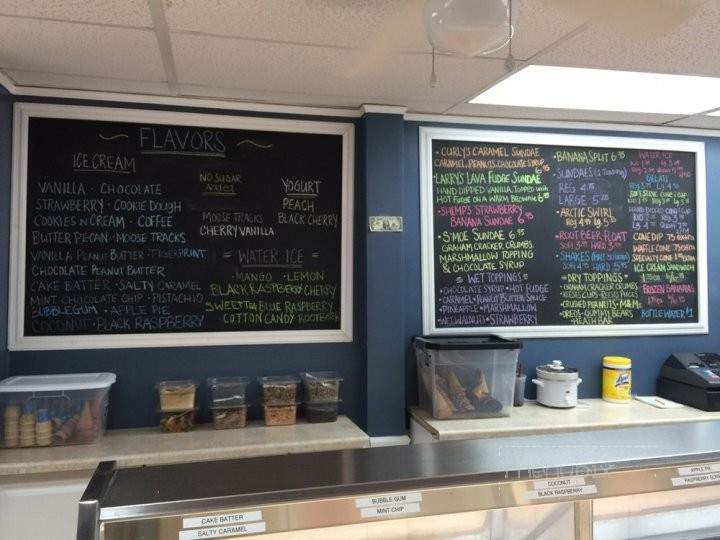 FLAVORS
ICE CREAM
VANILLA · CHOCOLATE
STRAWBERRY · COOKIE DOUGH
COOKIES N CREAM · COFFEE
BUTTER PECAN · MOOSE TRACKS
VANILLA PEANUT BUTTER · TIGERPRINT
CHOCOLATE PEANUT BUTTER
CAKE BATTER · SALTY CARAMEL
MINT CHOCOLATE CHIP · PISTACHIO
BUBBLEGUM · APPLE PIE
COCONUT · BLACK RASPBERRY
NO SUGAR
ADDED
MOOSE TRACKS
CHERRY VANILLA
YOGURT
PEACH
BLACK CHERRY
= WATER ICE =
MANGO · LEMON
BLACK RASPBERRY CHERRY
BLUE RASPBERRY
COTTON CANDY ROOTBEER
· CURLY'S CARAMEL SUNDAE
CARAMEL, PEANUTS, CHOCOLATE SYRUP
· LARRY'S LAVA FUDGE SUNDAE
HAND DIPPED VANILLA, TOPPED WITH
HOT FUDGE ON A WARM BROWNIE
· SHEMP'S STRAWBERRY
BANANA SUNDAE
· S'MOE SUNDAE
GRAHAM CRACKER CRUMBS
MARSHMALLOW TOPPING
& CHOCOLATE SYRUP
= WET TOPPINGS =
· CHOCOLATE SYRUP · HOT FUDGE
· CARAMEL · PEANUT BUTTER SAUCE
· PINEAPPLE · MARSHMALLOW
· WET WALNUTS · STRAWBERRY
· BANANA SPLIT
· SUNDAES (1 TOPPING)
REG
LARGE
· ARCTIC SWIRL
REG LG
· ROOT BEER FLOAT
SOFT HARD
· SHAKES
SOFT HARD
= DRY TOPPINGS =
· GRAHAM CRACKER CRUMBS
· REESES CUPS · REESES PIECES
· CRUSHED PEANUTS · M&MS
· OREOS · GUMMI BEARS
· HEATH BAR
WATER ICE
GELATI
CONE DIP
WAFFLE CONE
SPECIALTY CONE
ICE CREAM SANDWICH
FROZEN BANANAS
BOTTLE WATER $1
LYSOL
CAKE BATTER
SALTY CARAMEL
BUBBLE GUM
MINT CHIP
COCONUT
BLACK RASPBERRY
APPLE PIE